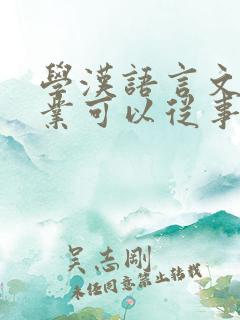 學漢語言文
業可以從事
吴志剛
未经同意禁止转载